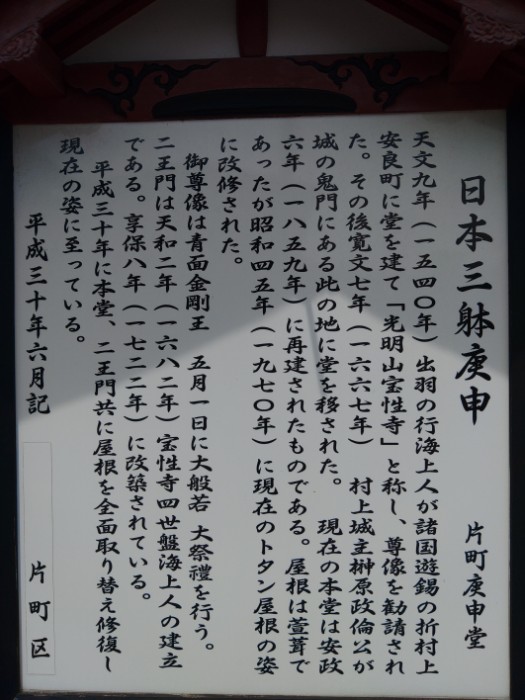 日本三躰庚申　片町庚申堂
天文九年（一五四〇年）出羽の行海上人が諸国遊錫の折村上
安良町に堂を建て「光明山宝性寺」と称し、尊像を勧請され
た。その後寛文七年（一六六七年）　村上城主榊原政倫公が
城の鬼門にある此の地に堂を移された。　現在の本堂は安政
六年（一八五九年）に再建されたものである。屋根は萱葺で
あったが昭和四五年（一九七〇年）に現在のトタン屋根の姿
に改修された。
御尊像は青面金剛王　五月一日に大般若　大祭禮を行う。
二王門は天和二年（一六八二年）宝性寺四世盤海上人の建立
である。享保八年（一七二二年）に改築されている。
平成三十年に本堂、二王門共に屋根を全面取り替え修復し
現在の姿に至っている。
平成三十年六月記　片町区